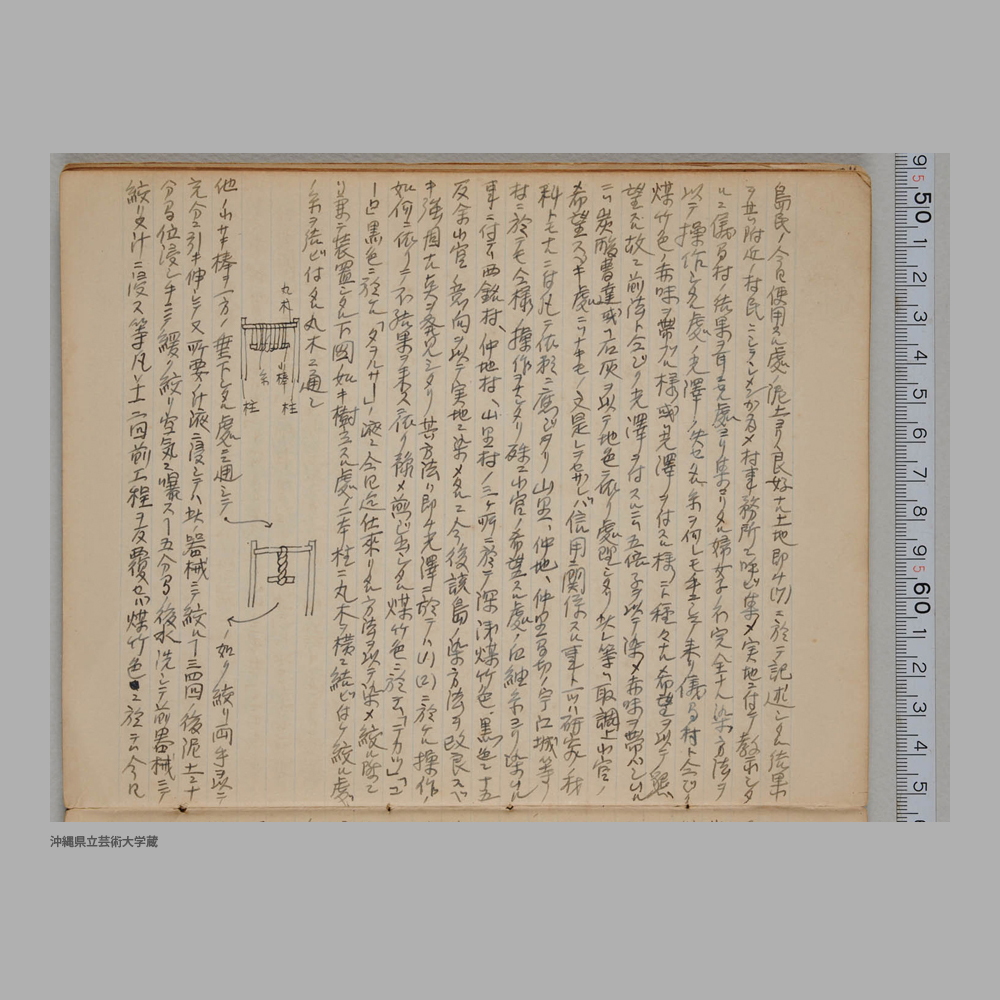 島民ノ今日使用スル處ノ泥土ヨリ良好ナル土地即チ(ワ)ニ於テ記述シタル結果
ヲ其附近ノ村民ニシラシメンカ為メ村事務所ニ呼ビ集メ実地ニ付テ教示シタ
ルニ儀間村ノ結果ヲ耳 處 ヨリ集マリタル婦女子不完全ナル染方法ヲ
以テ操作シタル處ノ光澤ノ失セタル糸ヲ何レモ手ニシテ来リ儀間村ト
煤竹色ノ赤味ヲ帯ブル様或ハ光澤ヲ付スル様ニ種々ナル希望ヲ以テ
望ズル故ニ前法ト ク光澤ヲ付スルニハ五倍子ヲ以テ染メ赤味ヲ帯バシムル
ニハ炭酸曹達或ハ石灰ヲ以テ地色ニ依リ處理シタリ 等ノ取調上小官ノ
希望スベキ處ニハナキモ ノ信用ニ関係スル事トハ研究ノ我
科トモナルニ付凡テ依頼ニ應ジタリ 山里、仲地、仲里間切ノ宇江城等ノ
村ニ於テモ今様ノ操作ヲナシタリ 殊ニ小官ノ希望スル處ノ白紬糸ヨリ染ムル
事ニ付テハ西銘村、仲地村、山里村ノ三ヶ所ニ於テ深 煤竹色、黒色ニ十五
反余小官ノ意向ヲ以テ実地ニ染メタルニ今後該島ノ染方法ヲ改良スベ
キ強固ナル点ヲ発見シタリ 其方法ハ即チ光澤ニ於テハ(ハ)(ロ)ニ於ケル操作ノ
如何ニ依リテ不結果ヲ来ス依リ 煎ジ出シタル煤竹色ニ於テハ「テカツ」「
黒色ニ於ケル「タヲルサー」ノ液ニ今日迄仕来リタル方法ヲ以テ染メ絞ル際ニ
装置シタル下図ノ如キ樹立スル處ノ二本柱ニ丸木ヲ横ニ結ビ付ケ絞ル處ノ
糸ヲ結ビ付タル丸木ニ通シ
丸木
糸
小棒
柱
柱
他ノ小サキ棒ヲ一方ノ垂下シタル處ニ通シテ
ノ如ク絞リ両手ヲ以テ
充分ニ引キ伸シテ又所要ノ汁液ニ浸シテハ 器械ニテ絞ル丁三四回ノ後泥土ニ十
分間位浸シ手ニテ緩ク絞リ空気ニ曝ス丁五分間ノ後水洗シテ前器械ニテ
絞リ又汁ニ浸ス等凡ソ十二回前工程ヲ反覆セバ煤竹色ニ於テハ今日
沖縄県立芸術大学蔵
9 50 1 2 3 4 5 6 7 8 9 60 1 2 3 4 5